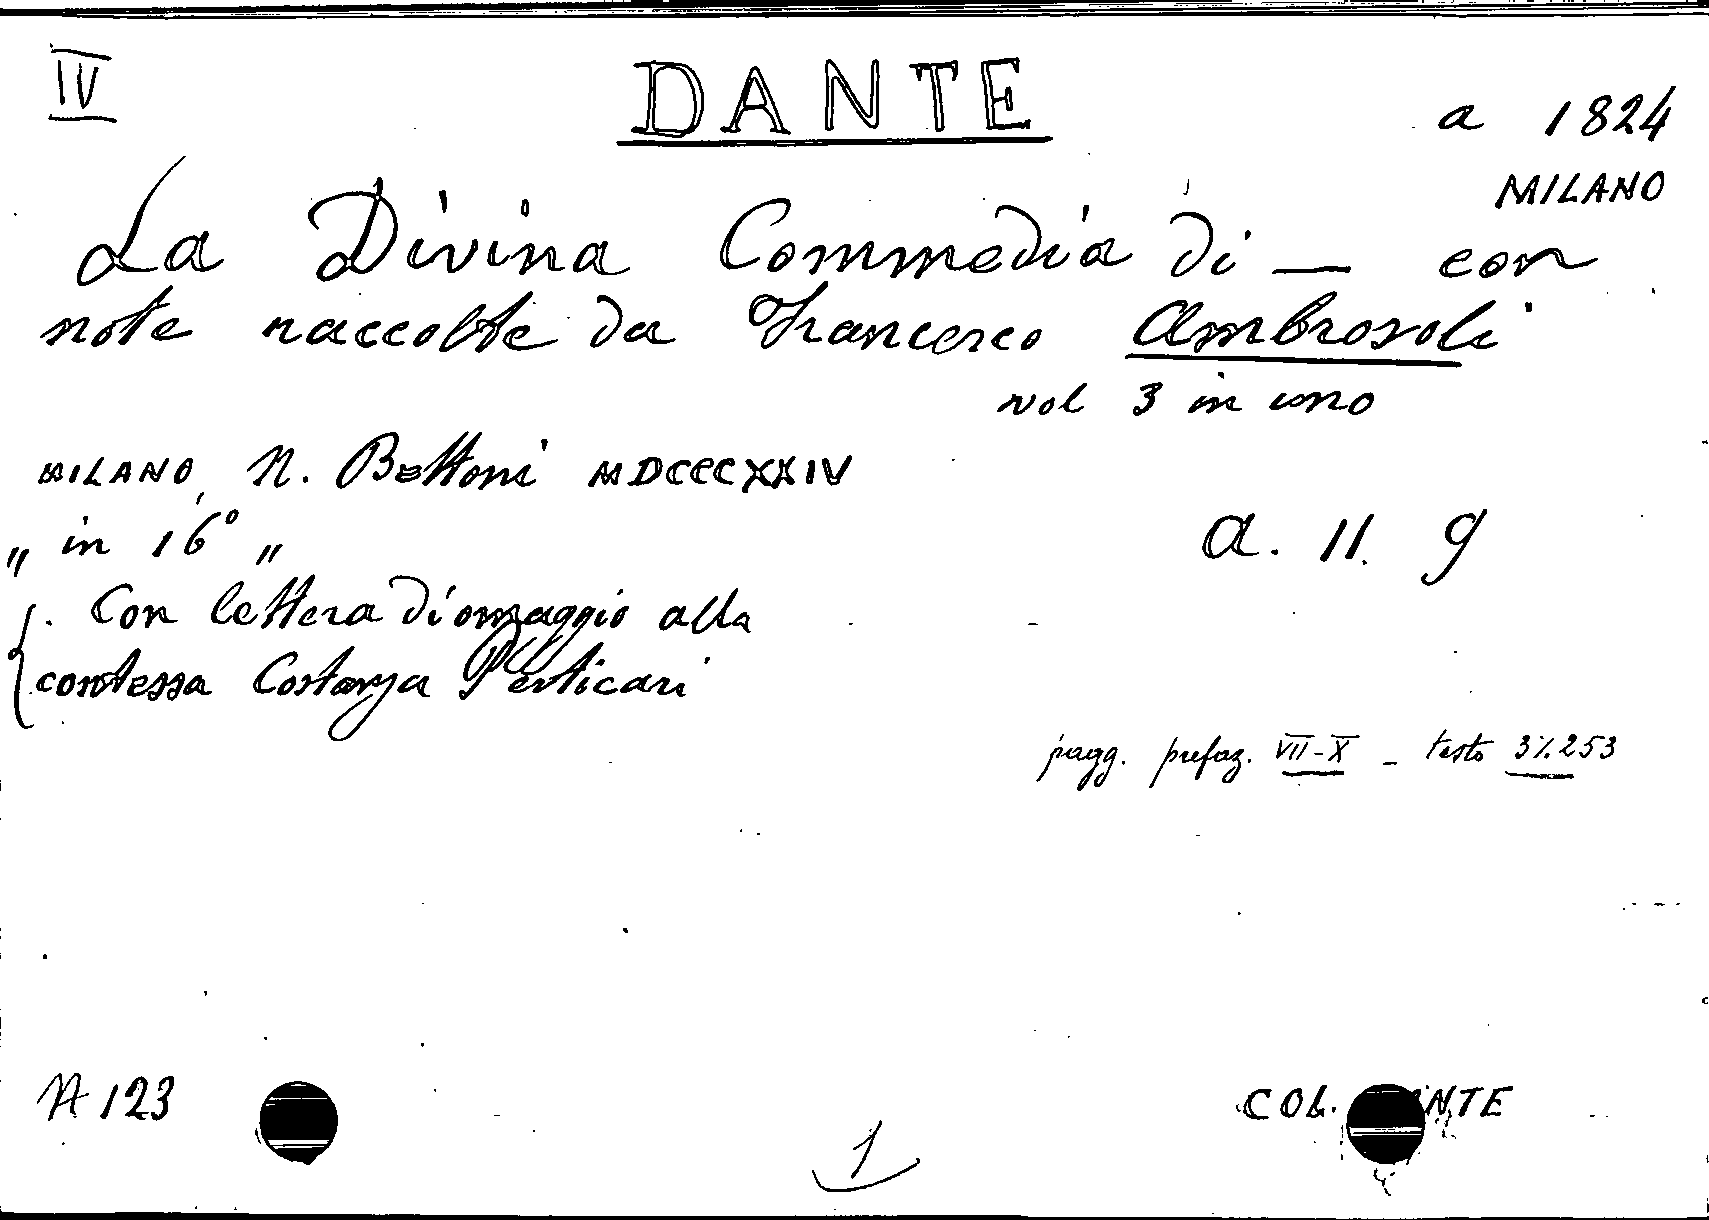 IV
DANTE
a 1824
MILANO
La Divina Commedia di — con
note raccolte da Francesco Ambrosoli
vol 3 in uno
MILANO, N. Bettoni MDCCCXXIV
" in 16° "
a. 11. 9
. Con lettera di omaggio alla
contessa Costanza Perticari
pagg. prefaz. VII-X - testo 3%253
A 123
COL. NTE
1